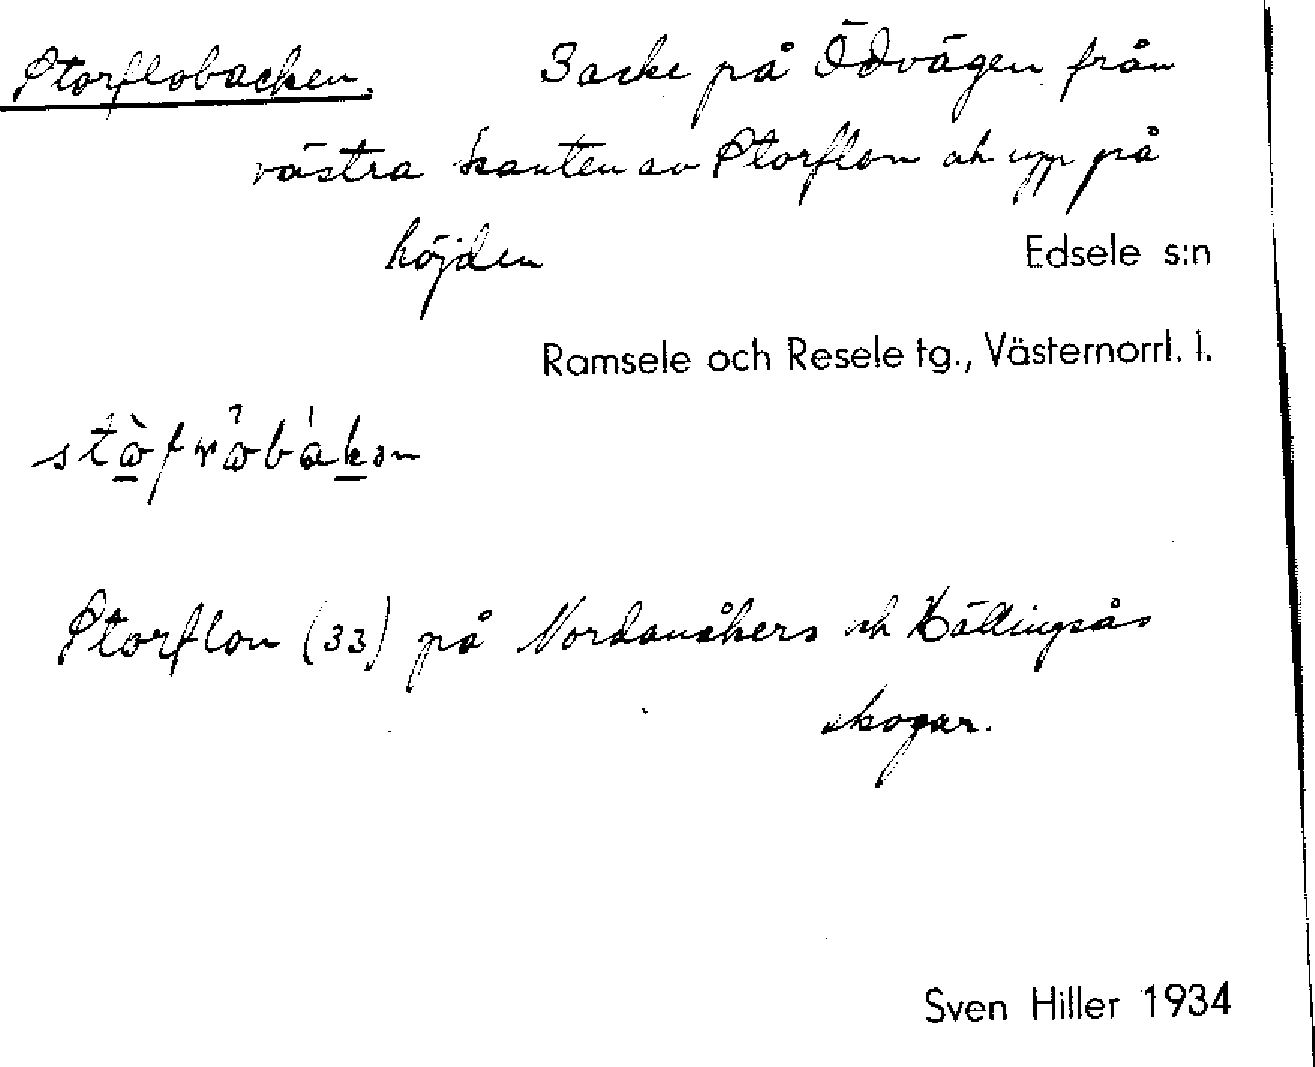 Storflobacken. Backe på Ödvägen från
västra kanten av Storflon och upp på
höjden
Edsele s:n
Ramsele och Resele tg., Västernorrl. l.
Storflon (33) på Nordanåkers och Källingsås
skogar.
Sven Hiller 1934